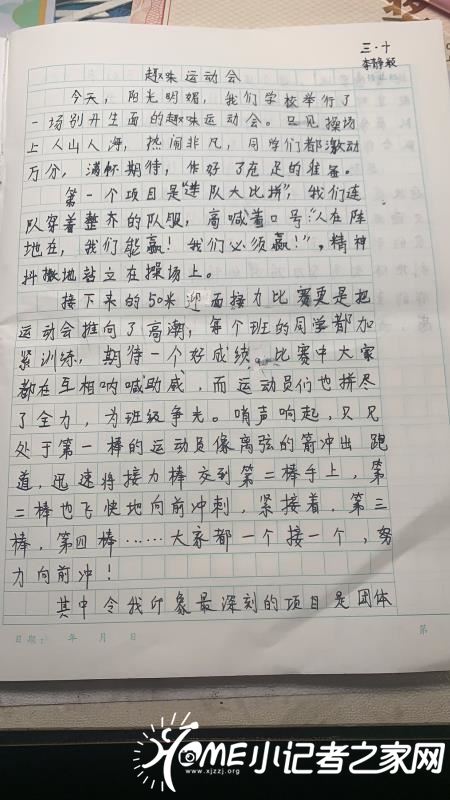 三·十
李静毅
趣味运动会
今天，阳光明媚，我们学校举行了
一场别开生面的趣味运动会。只见操场
上人山人海，热闹非凡，同学们都激动
万分，满怀期待，作好了充足的准备。
第一个项目是“进队大比拼”，我们连
队穿着整齐的队服，高喊着口号“人在阵
地在，我们能赢！我们必须赢！”，精神
抖擞地站立在操场上。
接下来的50米迎面接力比赛更是把
运动会推向了高潮，每个班的同学都加
紧训练，期待一个好成绩。比赛中大家
都在互相呐喊助威，而运动员们也拼尽
了全力，为班级争光。哨声响起，只见
处于第一棒的运动员像离弦的箭冲出跑
道，迅速将接力棒交到第二棒手上，第
二棒也飞快地向前冲刺，紧接着，第三
棒，第四棒……大家都一个接一个，努
力向前冲！
其中令我印象最深刻的项目是团体
日期： 年 月 日
第
HOME小记者之家网
www.xjzzj.org